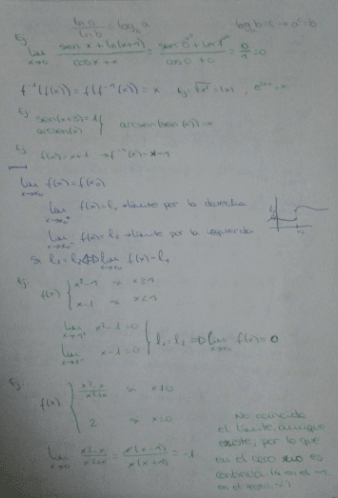 ln a / ln b = log_b a    log_a b = c → a^c = b
Ej
lim x→0 (sen x + ln(x+1)) / (cos x + x) = (sen 0 + ln 1) / (cos 0 + 0) = 0/1 = 0
f⁻¹(f(x)) = f(f⁻¹(x)) = x    Ej: √x² = |x| , e^(ln x) = x
Ej
arcsen(x) } arcsen(sen(x)) = x
Ej f(x) = x+1 → f⁻¹(x) = x-1
lim f(x) = f(x₀)
lim f(x) = l₁ → límite por la derecha
lim f(x) = l₂ → límite por la izquierda
Si l₁ = l₂ ⇒ lim f(x) = l₁
Ej: f(x) { x²-1 si x≥1
x-1 si x<1
lim x²-1 = 0
lim x-1 = 0 } l₁ = l₂ ⇒ lim f(x) = 0
Ej:
f(x) { (x²-x)/(x²+x) si x≠0
2 si x=0
lim x→0 (x²-x)/(x²+x) = x(x-1)/x(x+1) = -1
No coincide
el límite, aunque
existe, por lo que
en el caso no es
continua